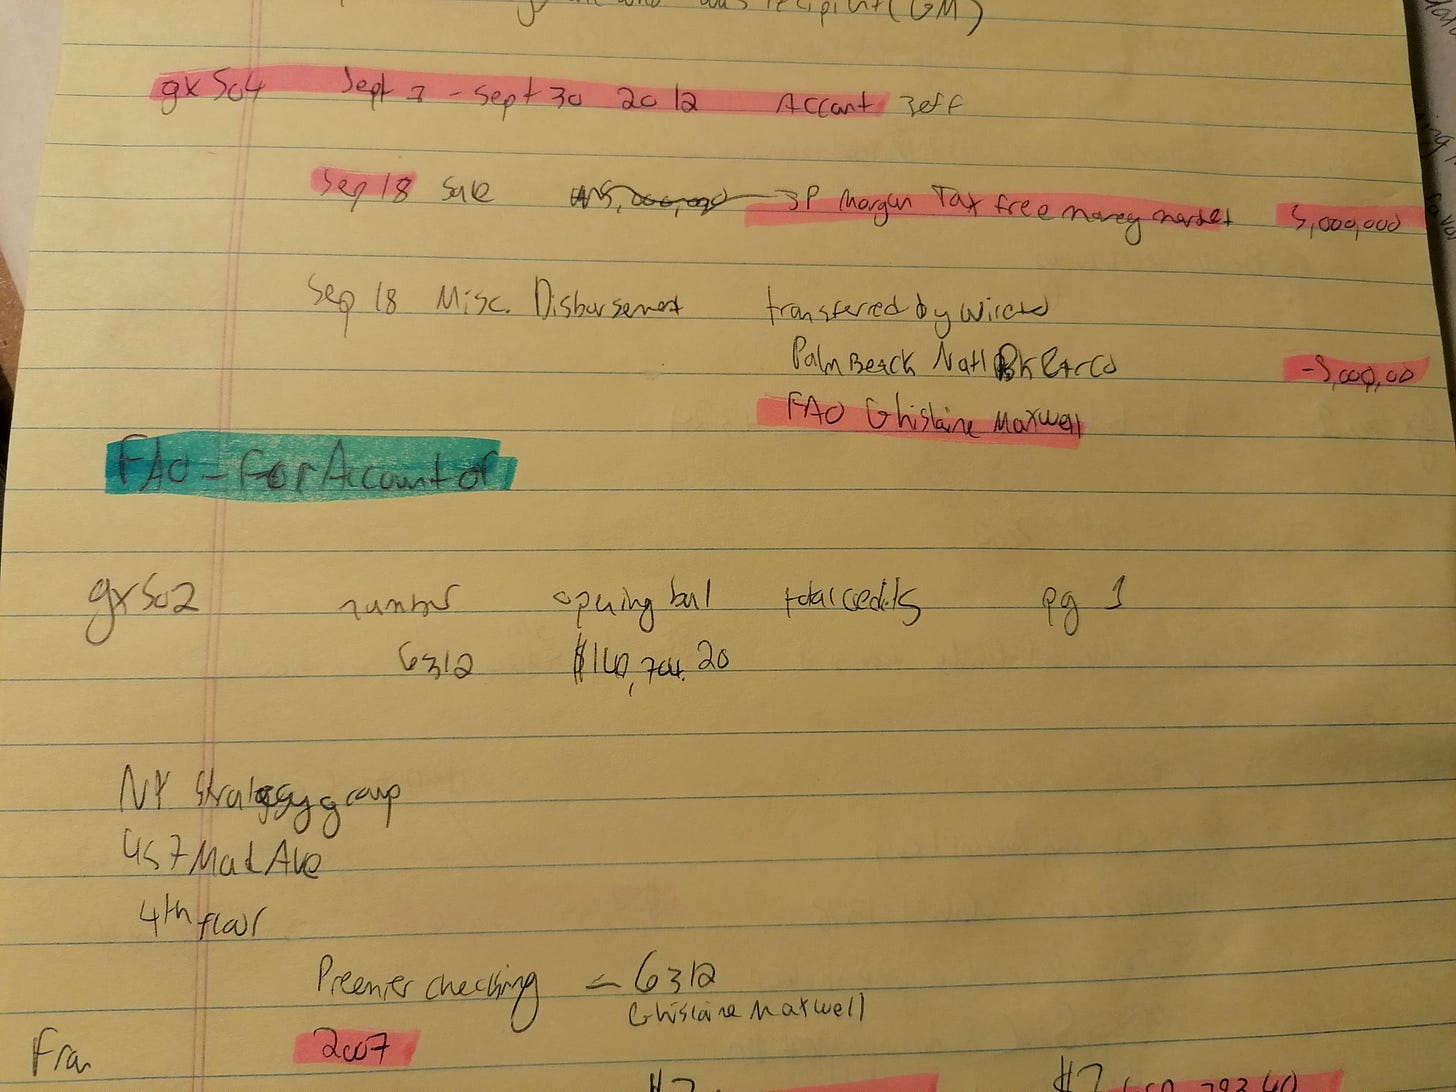 was recipint (GM)
gx 504 Sept 1 - Sept 30 2012 Account Jeff
Sep 18 Sale JP Morgan Tax free money market 5,000,000
Sep 18 Misc. Disbursement transferred by wire to
Palm Beach Natl Bk & Tr Co -5,000,00
FAO Ghislaine Maxwell
FAO - For Account of
gx 502 number opening bal total credits pg 1
6312
NY Strategy group
457 Mad Ave
4th floor
Preemier checking = 6312
Ghislaine Maxwell
Fra 2007